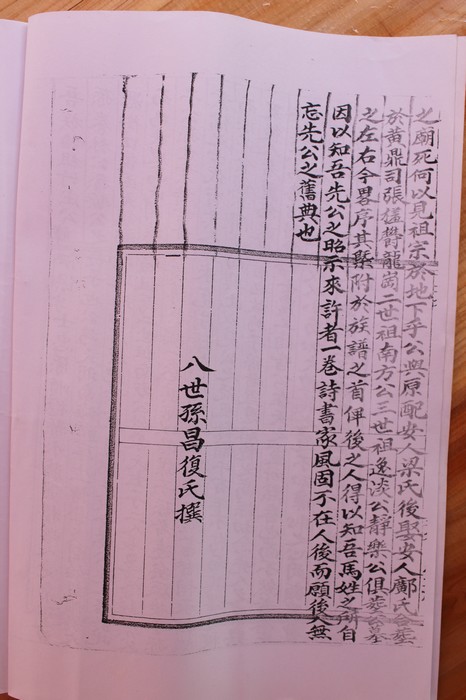 之廟死何以見祖宗於地下乎公與原配安人梁氏後娶安人鄺氏合塟
於黃鼎司張槎欝龍崗二世祖南方公三世祖逸淡公靜樂公俱塟公墓
之左右今畧序其槩附於族譜之首俾後之人得以知吾馬姓之所自
因以知吾先公之昭示來許者一卷詩書家風固不在人後而願後人無
忘先公之舊典也
八世孫昌復氏撰